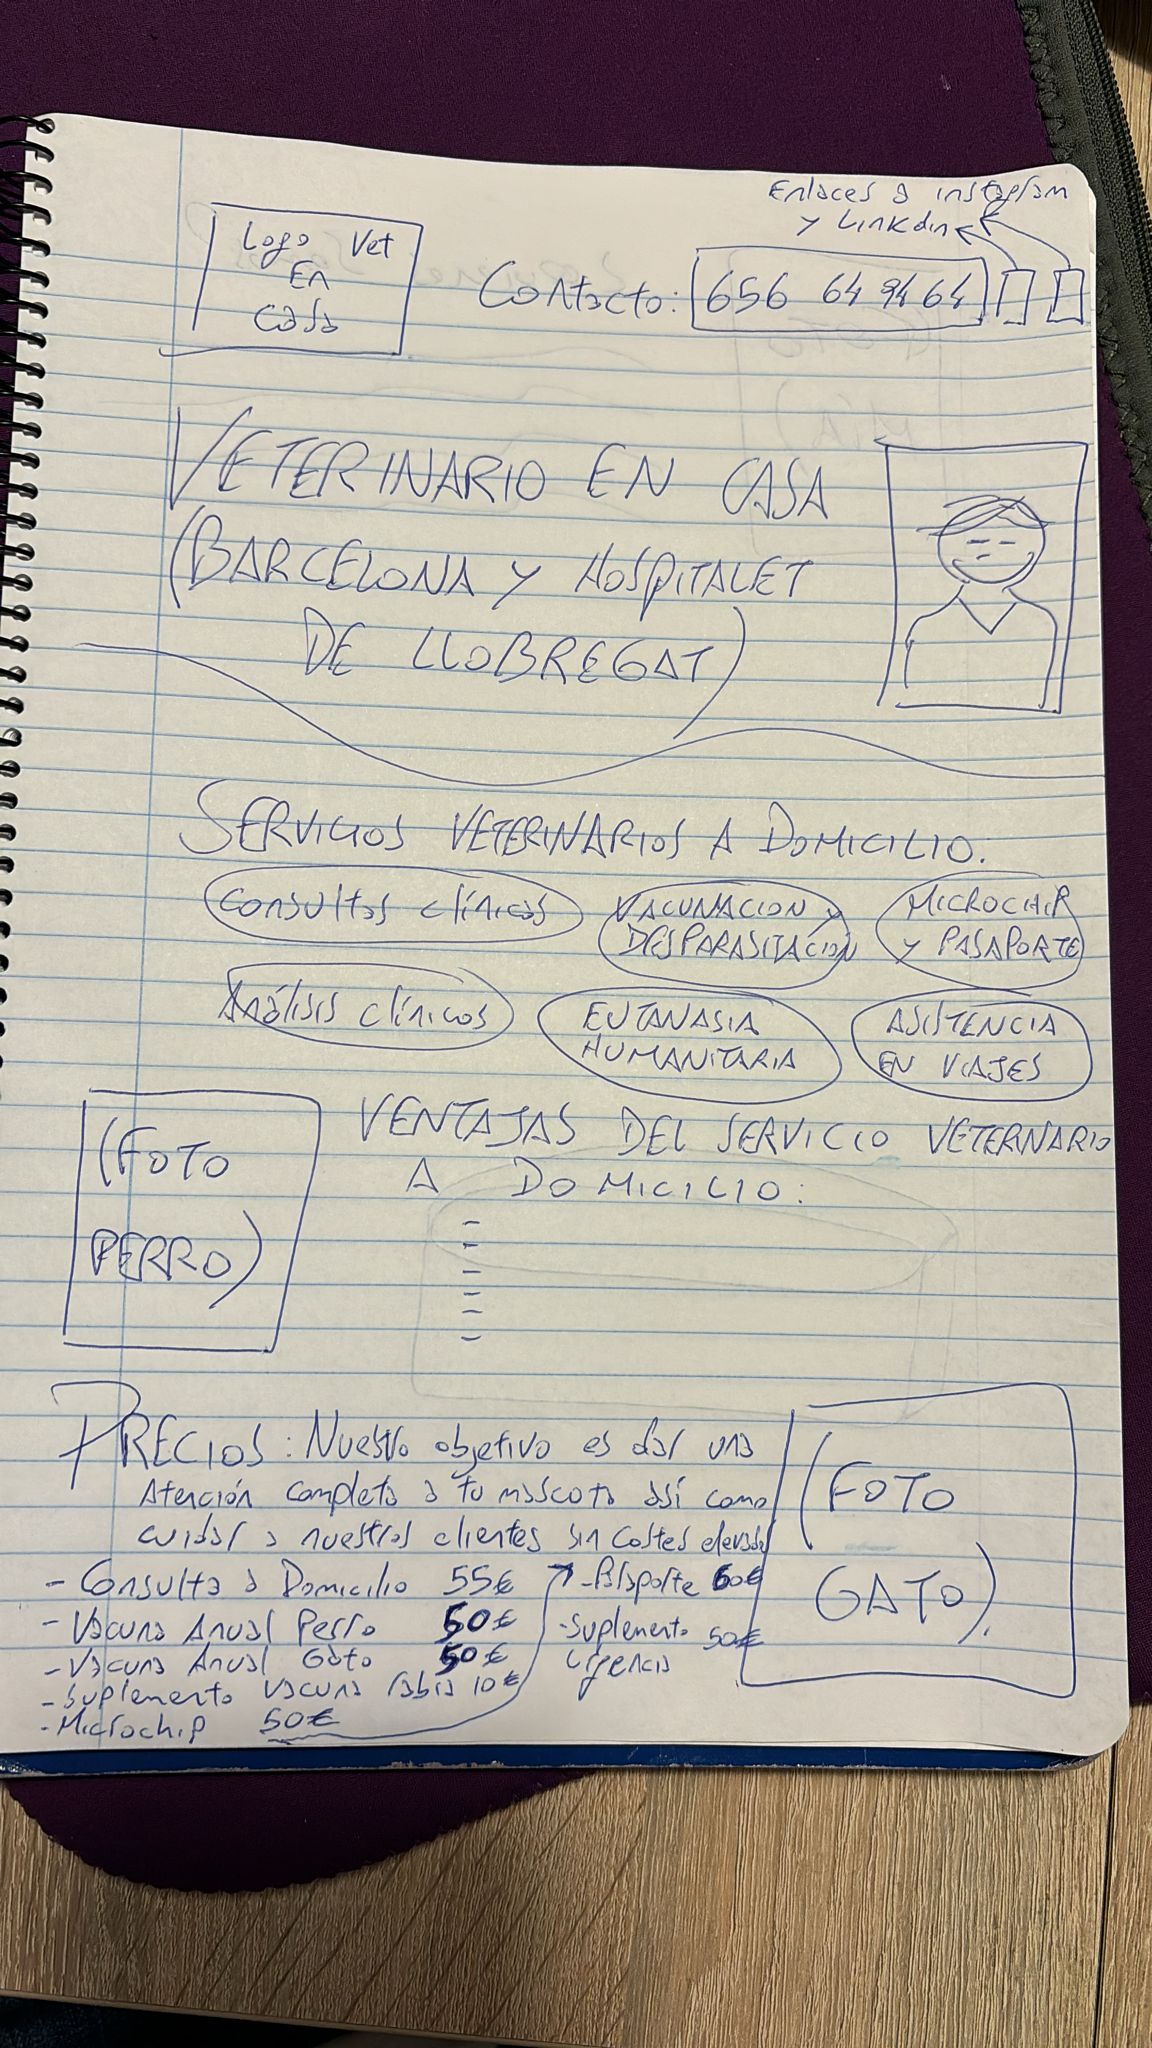 Enlaces a instagram
y Linkdin
Logo Vet
En
casa
Contacto: 656 64 94 64
VETERINARIO EN CASA
(BARCELONA Y HOSPITALET
DE LLOBREGAT)
SERVICIOS VETERINARIOS A DOMICILIO.
Consultas clínicas
VACUNACION y
DESPARASITACION
MICROCHIP
y PASAPORTE
Análisis clínicos
EUTANASIA
HUMANITARIA
ASISTENCIA
EN VIAJES
(FOTO
PERRO)
VENTAJAS DEL SERVICIO VETERNARIO
A DOMICILIO:
-
-
-
-
-
-
PRECIOS: Nuestro objetivo es dar una
Atención completa a tu mascota así como
cuidar a nuestros clientes sin costes elevados
- Consulta a Domicilio 55€
- Vacuna Anual Perro 50€
- Vacuna Anual Gato 50€
- Suplemento vacuna rabia 10€
- Microchip 50€
- Pasaporte 60€
- Suplemento 50€
urgencia
(FOTO
GATO).